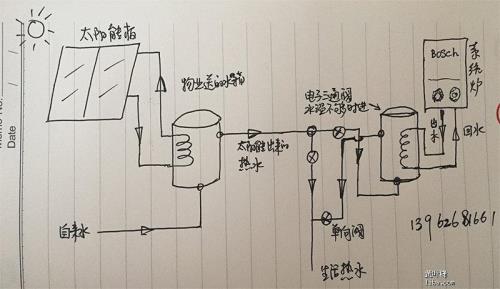 太阳能箱
物业送的水箱
电子三通阀
水温不够时进
Bosch
系统炉
出水
回水
太阳能出来的
热水
自来水
单向阀
生活热水
13962681661
Date